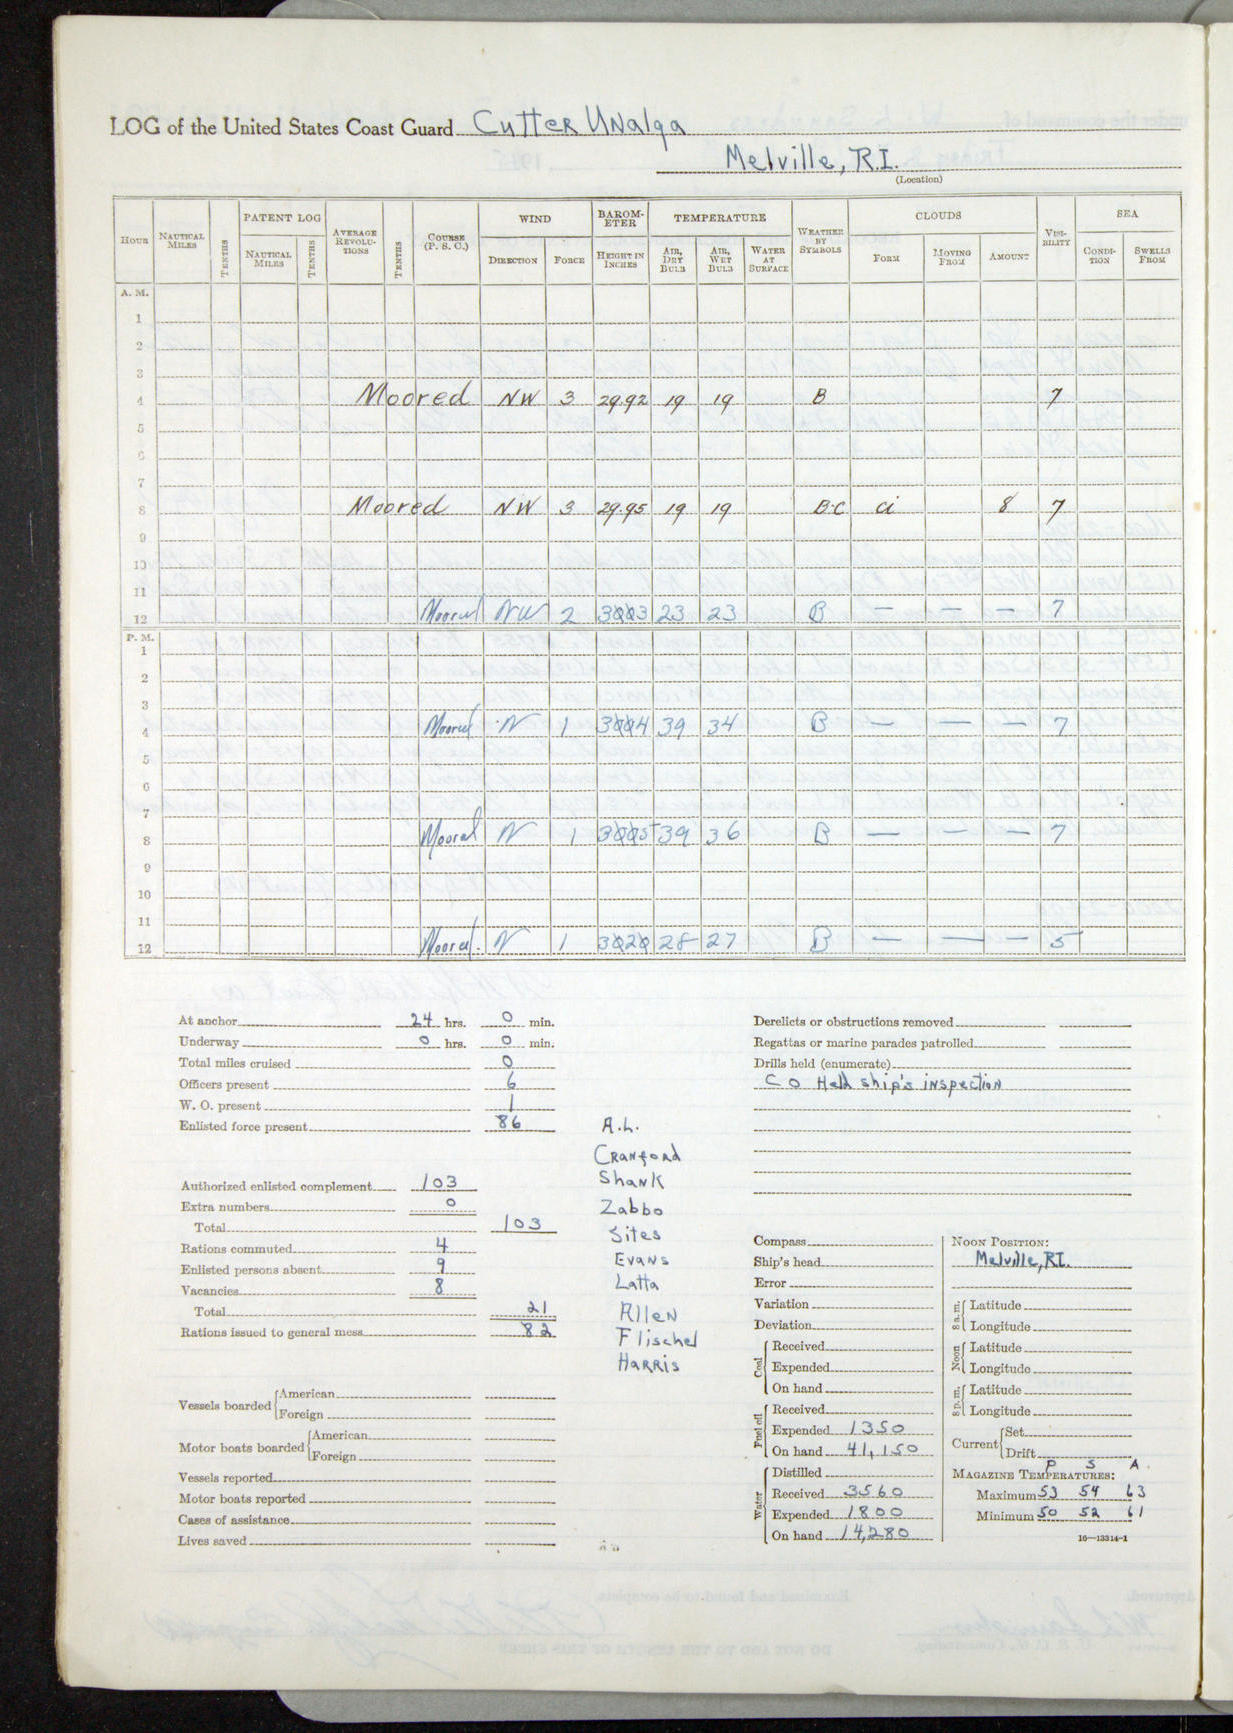 LOG of the United States Coast Guard Cutter Unalga
Melville, R.I.
(Location)
HOUR NAUTICAL MILES TENTHS PATENT LOG NAUTICAL MILES TENTHS AVERAGE REVOLUTIONS TENTHS COURSE (P. S. C.) WIND DIRECTION FORCE BAROMETER HEIGHT IN INCHES TEMPERATURE AIR, DRY BULB AIR, WET BULB WATER AT SURFACE WEATHER BY SYMBOLS CLOUDS FORM MOVING FROM AMOUNT VISIBILITY SEA CONDITION SWELLS FROM
A. M.
1
2
3
4 Moored NW 3 29.92 19 19 B 7
5
6
7
8 Moored NW 3 29.95 19 19 BC Ci 8 7
9
10
11
12 Moored NW 2 3003 23 23 B — — — 7
P. M.
1
2
3
4 Moored N 1 3004 39 34 B — — — 7
5
6
7
8 Moored N 1 3005 39 36 B — — — 7
9
10
11
12 Moored. N 1 3020 28 27 B — — — 5
At anchor 24 hrs. 0 min.
Underway 0 hrs. 0 min.
Total miles cruised 0
Officers present 6
W. O. present 1
Enlisted force present 86
Authorized enlisted complement 103
Extra numbers 0
Total 103
Rations commuted 4
Enlisted persons absent 9
Vacancies 8
Total 21
Rations issued to general mess 82
Vessels boarded American
Foreign
Motor boats boarded American
Foreign
Vessels reported
Motor boats reported
Cases of assistance
Lives saved
A.L.
Cranford
Shank
Zabbo
Sites
Evans
Latta
Allen
Flischel
Harris
Derelicts or obstructions removed
Regattas or marine parades patrolled
Drills held (enumerate)
CO Held ship's inspection
Compass
Ship's head
Error
Variation
Deviation
Coal Received
Expended
On hand
Fuel oil Received
Expended 1350
On hand 41,150
Water Distilled
Received 3560
Expended 1800
On hand 14,280
NOON POSITION:
Melville, R.I.
8 a.m. Latitude
Longitude
Noon Latitude
Longitude
8 p.m. Latitude
Longitude
Current Set
Drift
P S A
MAGAZINE TEMPERATURES:
Maximum 53 54 63
Minimum 50 52 61
16—13314-1